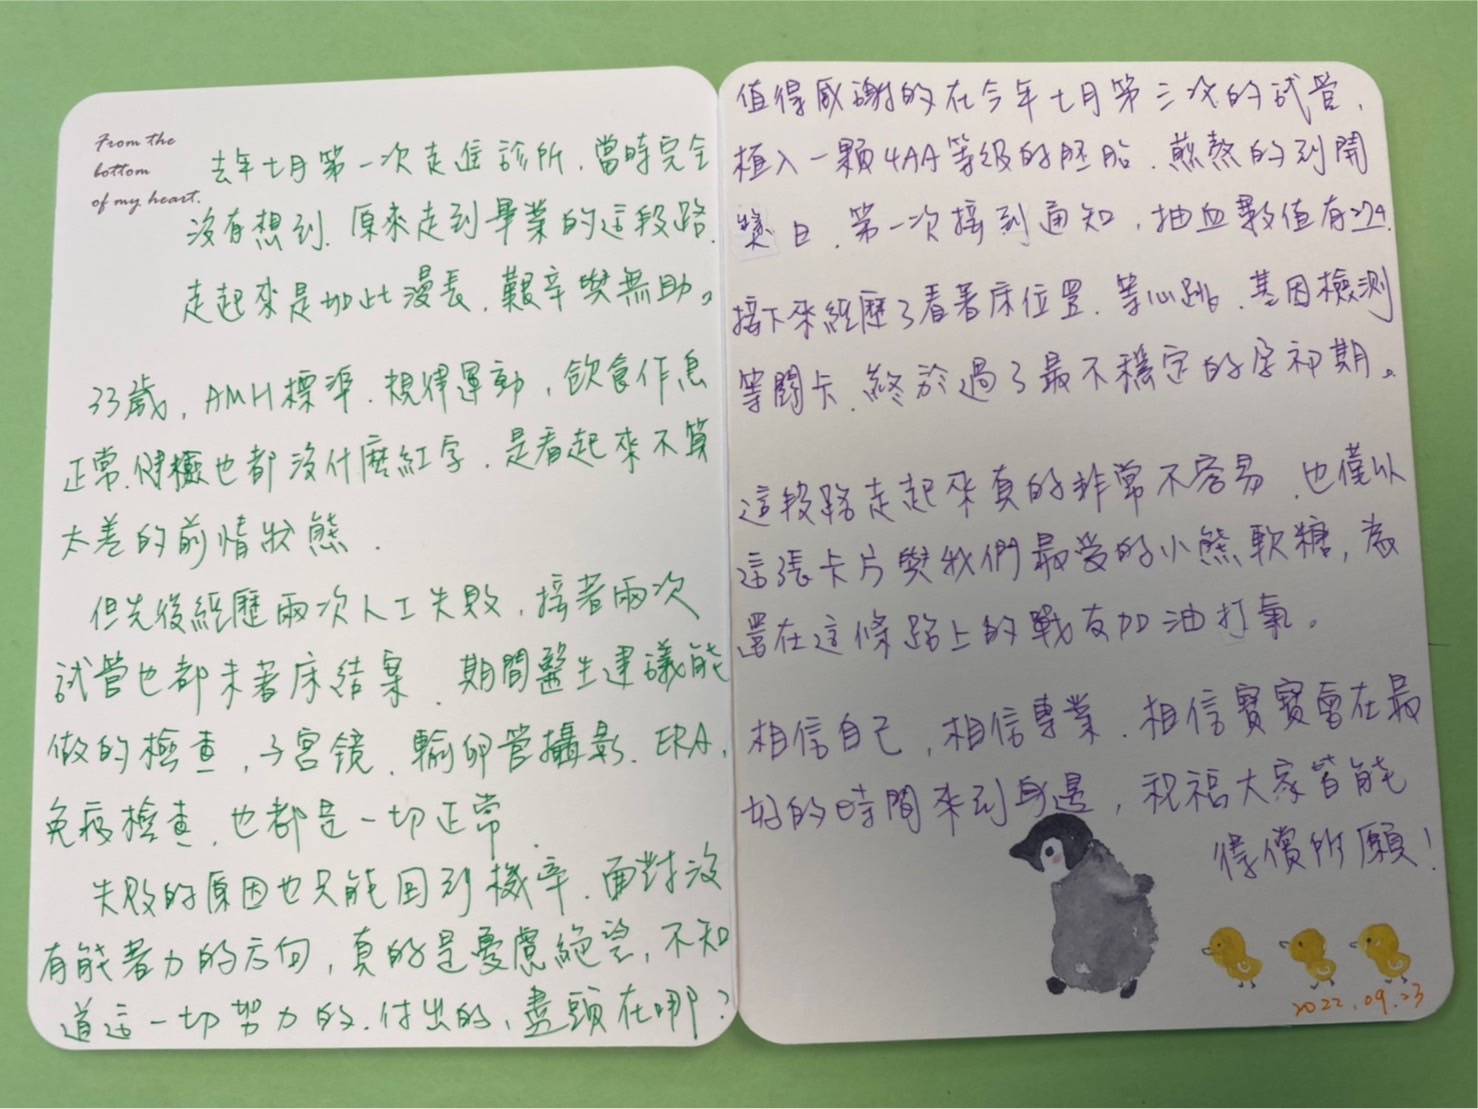 From the
bottom
of my heart.
去年七月第一次走進診所，當時完全
沒有想到，原來走到畢業的這段路，
走起來是如此漫長，艱辛與無助。
33歲，AMH標準，規律運動，飲食作息
正常，健檢也都沒什麼紅字，是看起來不算
太差的前情狀態。
但先後經歷兩次人工失敗，接著兩次
試管也都未著床結案，期間醫生建議能
做的檢查，子宮鏡、輸卵管攝影、ERA，
免疫檢查，也都是一切正常。
失敗的原因也只能回到機率，面對沒
有能著力的方向，真的是憂慮絕望，不知
道這一切努力的、付出的，盡頭在哪？
值得感謝的在今年七月第三次的試管，
植入一顆4AA等級的胚胎，煎熬的到開
獎日，第一次接到通知，抽血數值有274.
接下來經歷了看著床位置、等心跳、基因檢測
等關卡，終於過了最不穩定的孕初期。
這段路走起來真的非常不容易，也僅以
這張卡片與我們最愛的小熊軟糖，為
還在這條路上的戰友加油打氣。
相信自己，相信專業，相信寶寶會在最
好的時間來到身邊，祝福大家皆能
償所願！
2022.09.23